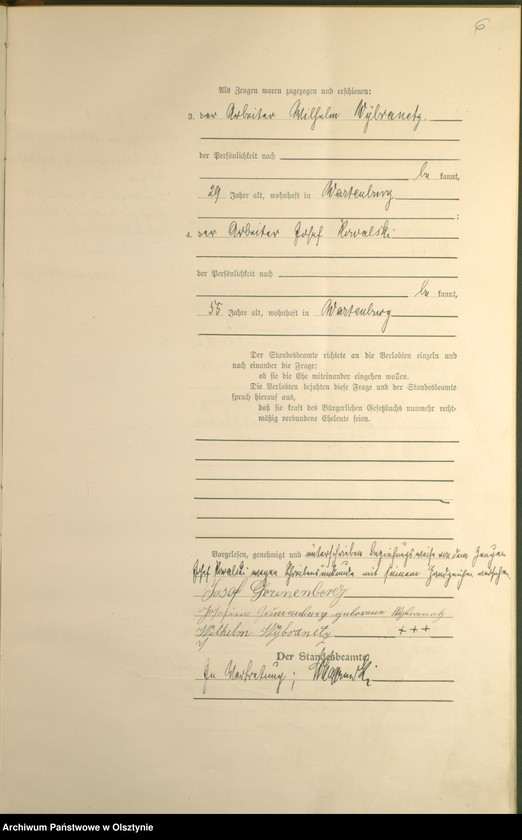 6
Als Zeugen waren zugezogen und erschienen:
3. der Arbeiter Wilhelm Wybranetz.
der Persönlichkeit nach
be kannt,
29 Jahre alt, wohnhaft in Wartenburg
;
4. der Arbeiter Josef Kowalski
der Persönlichkeit nach
be kannt,
55 Jahre alt, wohnhaft in Wartenburg
Der Standesbeamte richtete an die Verlobten einzeln und
nach einander die Frage:
ob sie die Ehe miteinander eingehen wollen.
Die Verlobten bejahten diese Frage und der Standesbeamte
sprach hierauf aus,
daß sie kraft des Bürgerlichen Gesetzbuchs nunmehr recht-
mäßig verbundene Eheleute seien.
Vorgelesen, genehmigt und unterschrieben beziehungsweise von dem Zeugen
Josef Kowalski wegen Schreibensunkunde mit seinem Handzeichen versehen.
Josef Grunenberg
Josefina Grunenberg geborene Wybranetz
Wilhelm Wybranetz +++
Der Standesbeamte
In Vertretung;
Archiwum Państwowe w Olsztynie